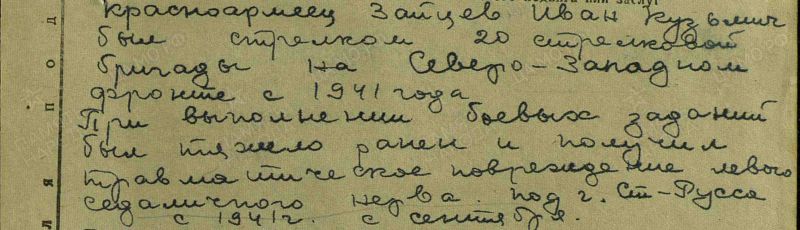 красноармеец Зайцев Иван Кузьмич
был стрелком 20 стрелковой
бригады на Северо-Западном
фронте с 1941 года
При выполнении боевых заданий
был тяжело ранен и получил
травматическое повреждение левого
седаличного нерва. под г. Ст-Русса
с 1941г. с сентября.